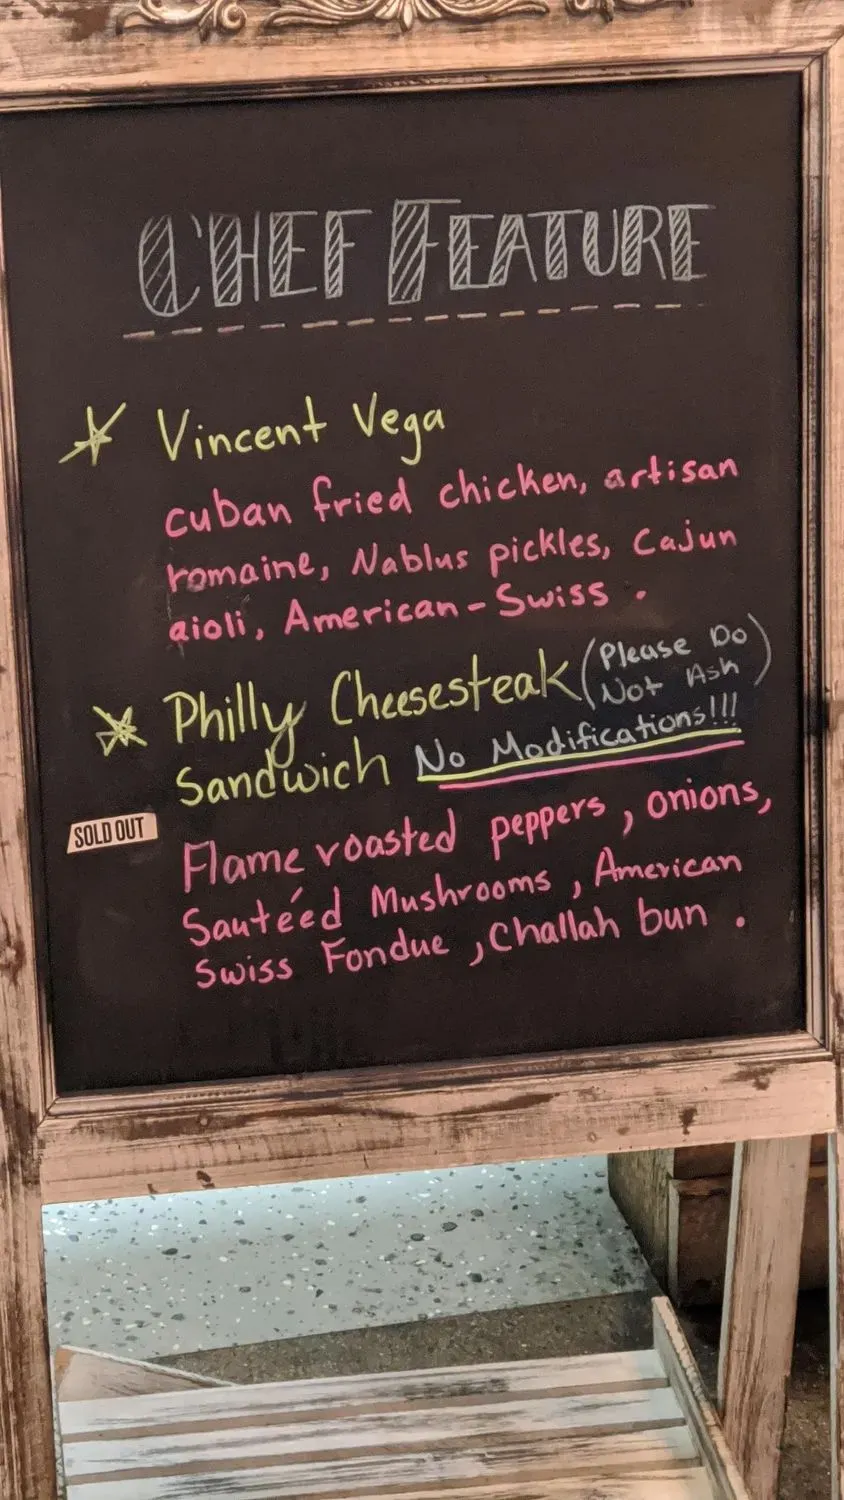 CHEF FEATURE
Vincent Vega
cuban fried chicken, artisan
romaine, Nablus pickles, Cajun
aioli, American-Swiss.
Philly Cheesesteak (Please Do
Not Ask)
Sandwich No Modifications!!!
SOLD OUT
Flame roasted peppers, onions,
Sautéed Mushrooms, American
Swiss Fondue, Challah bun.